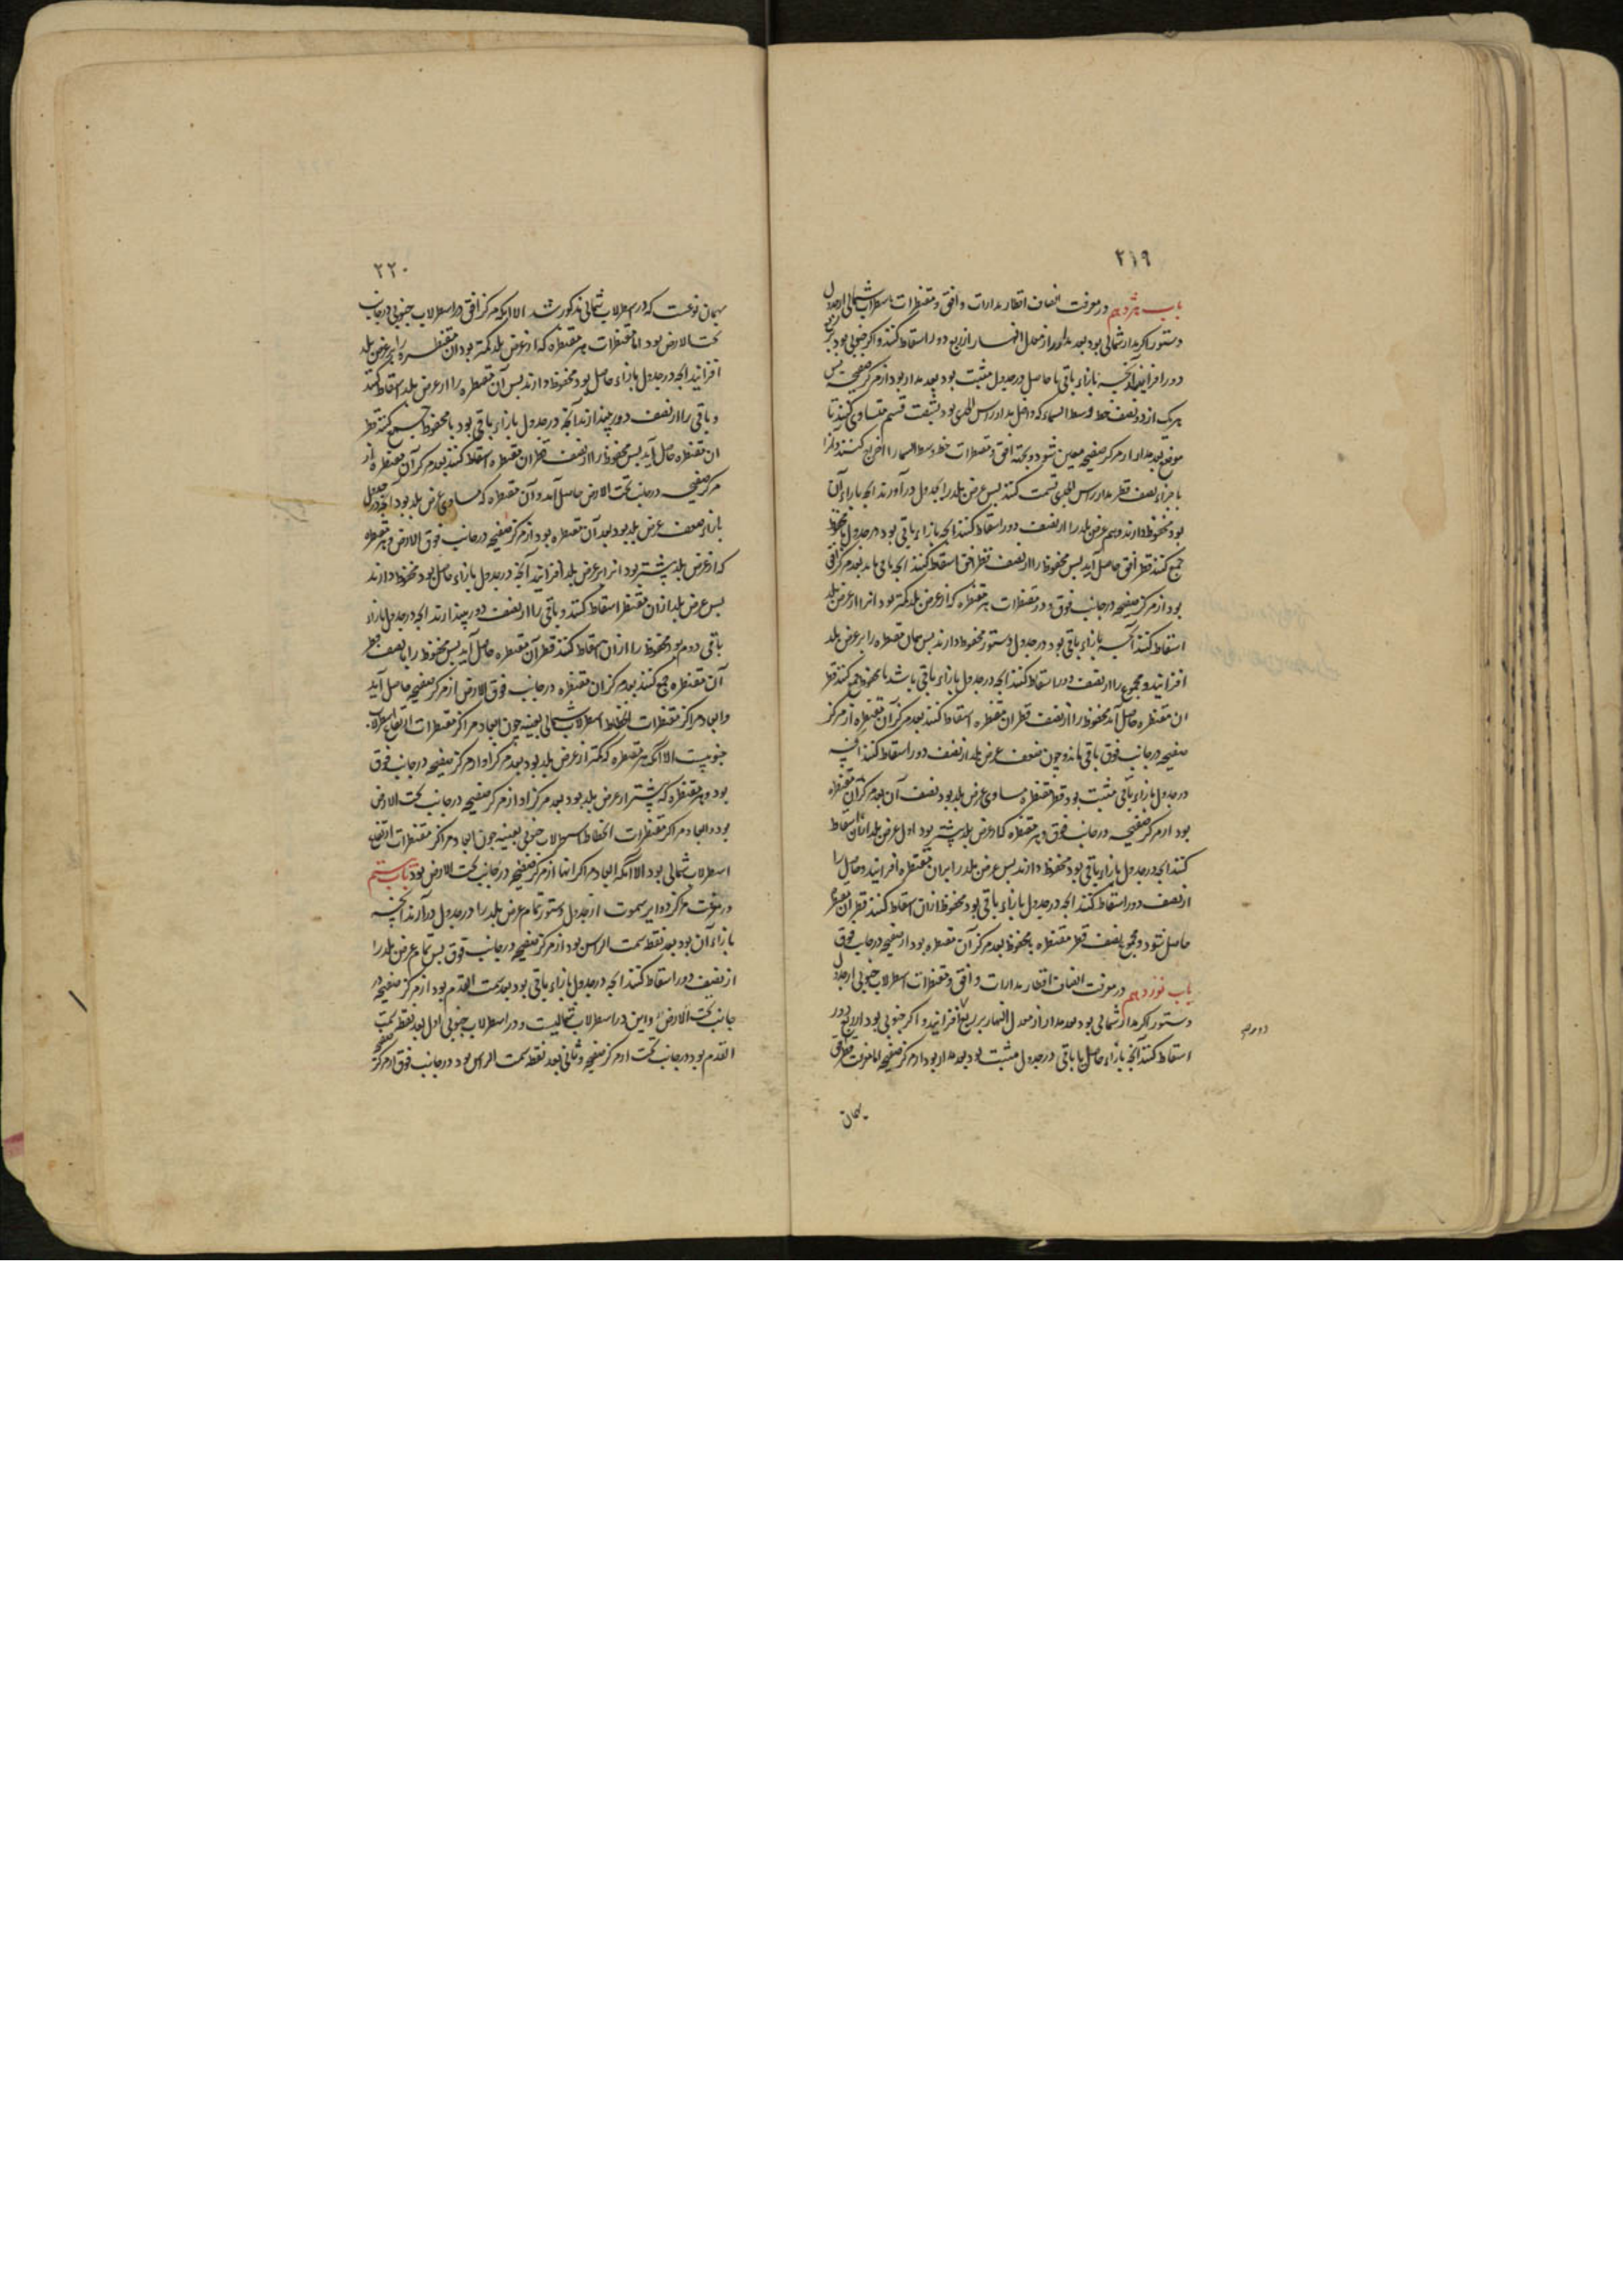 ۲۱۹
باب هژدهم در معرفت انصاف اقطار مدارات و افق و مقنطرات اسطرلاب شمالی از جدول
دستور اگر مدار شمالی بود بعد مدار را از معدل النهار از ربع دور اسقاط کنند و اگر جنوبی بود بر ربع
دور افزایند آنچه بازاء باقی یا حاصل در جدول مثبت بود بعد مدار بود از مرکز صفیحه پس
هریک از دو نصف خط وسط السماء که داخل مدار راس الجدی بود بشصت قسم متساوی کنند تا
موضع بعد مدار از مرکز صفیحه معین شود و بجهة افق و مقنطرات خط وسط السماء را اخراج کنند و آنرا
باجزاء نصف قطر مدار راس الجدی قسمت کنند پس عرض بلد را بجدول درآورند انچه بازاء آن
بود محفوظ دارند و هم عرض بلد را از نصف دور اسقاط کنند انچه بازاء باقی بود در جدول با محفوظ
جمع کنند قطر افق حاصل آید پس محفوظ را از نصف قطر افق اسقاط کنند انچه باقی ماند بعد مرکز افق
بود از مرکز صفیحه در جانب فوق و در مقنطرات هر مقنطره که از عرض بلد کمتر بود انرا از عرض بلد
اسقاط کنند آنچه بازاء باقی بود در جدول دستور محفوظ دارند پس همان مقنطره را بر عرض بلد
افزایند و مجموع را از نصف دور اسقاط کنند انچه در جدول بازاء باقی باشد با محفوظ جمع کنند قطر
ان مقنطره حاصل آید محفوظ را از نصف قطر ان مقنطره اسقاط کنند بعد مرکز آن مقنطره از مرکز
صفیحه در جانب فوق باقی ماند و چون ضعف عرض بلد از نصف دور اسقاط کنند آنچه
در جدول بازاء باقی مثبت بود قطر مقنطره مساوی عرض بلد بود نصف آن بعد مرکز ان مقنطره
بود از مرکز صفیحه در جانب فوق و هر مقنطره که از عرض بلد بیشتر بود اول عرض بلد از ان اسقاط
کنند انچه در جدول بازاء باقی بود محفوظ دارند پس عرض بلد را بران مقنطره افزایند و حاصل را
از نصف دور اسقاط کنند انچه در جدول بازاء باقی بود محفوظ ازان اسقاط کنند قطر ان مقنطره
حاصل شود و مجموع نصف قطر مقنطره با محفوظ بعد مرکز آن مقنطره بود از صفیحه در جانب فوق
باب نوزدهم در معرفت انصاف اقطار مدارات و افق و مقنطرات اسطرلاب جنوبی از جدول
دستور اگر مدار شمالی بود بعد مدار از معدل النهار بر ربع افزایند و اگر جنوبی بود از ربع دور
اسقاط کنند آنچه بازاء حاصل یا باقی در جدول مثبت بود بعد مدار بود از مرکز صفیحه اما معرفت قطر افق
بهمان
۲۲۰
بهمان نوعست که در اسطرلاب شمالی مذکور شد الا انکه مرکز افق در اسطرلاب جنوبی در جانب
تحت الارض بود اما مقنطرات هر مقنطره که از عرض بلد کمتر بود ان مقنطره را بر عرض بلد
افزایند انچه در جدول بازاء حاصل بود محفوظ دارند پس آن مقنطره را از عرض بلد اسقاط کنند
و باقی را از نصف دور بیندازند آنچه در جدول بازاء باقی بود با محفوظ جمع کنند قطر
ان مقنطره حاصل آید پس محفوظ را از نصف قطر ان مقنطره اسقاط کنند بعد مرکز آن مقنطره از
مرکز صفیحه در جانب تحت الارض حاصل آید و آن مقنطره که مساوی عرض بلد بود آنچه در جدول
بازاء ضعف عرض بلد بود بعد آن مقنطره بود از مرکز صفیحه در جانب فوق الارض و هر مقنطره
که از عرض بلد بیشتر بود انرا بر عرض بلد افزایند آنچه در جدول بازاء حاصل بود محفوظ دارند
پس عرض بلد ازان مقنطره اسقاط کنند و باقی را از نصف دور بیندازند انچه در جدول بازاء
باقی دوم بود محفوظ را ازان اسقاط کنند قطر آن مقنطره حاصل آید پس محفوظ را با نصف قطر
آن مقنطره جمع کنند بعد مرکز ان مقنطره در جانب فوق الارض از مرکز صفیحه حاصل آید
و ابعاد مراکز مقنطرات انحطاط اسطرلاب شمالی بعینه چون ابعاد مراکز مقنطرات ارتفاع اسطرلاب
جنوبیست الا انکه هر مقنطره که کمتر از عرض بلد بود بعد مرکز او از مرکز صفیحه در جانب فوق
بود و هر مقنطره که بیشتر از عرض بلد بود بعد مرکز او از مرکز صفیحه در جانب تحت الارض
بود و ابعاد مراکز مقنطرات انحطاط اسطرلاب جنوبی بعینه چون ابعاد مراکز مقنطرات ارتفاع
اسطرلاب شمالی بود الا انکه ابعاد مراکز انها از مرکز صفیحه در جانب تحت الارض بود باب بیستم
در معرفت مراکز دوایر سموت از جدول دستور تمام عرض بلد را در جدول درآرند آنچه
بازاء آن بود بعد نقطه سمت الراس بود از مرکز صفیحه در جانب فوق پس تمام عرض بلد را
از نصف دور اسقاط کنند انچه در جدول بازاء باقی بود بعد سمت القدم بود از مرکز صفیحه در
جانب تحت الارض و این در اسطرلاب شمالیست و در اسطرلاب جنوبی اول بعد نقطه سمت
القدم بود در جانب تحت از مرکز صفیحه و ثانی بعد نقطه سمت الراس بود در جانب فوق از مرکز صفیحه